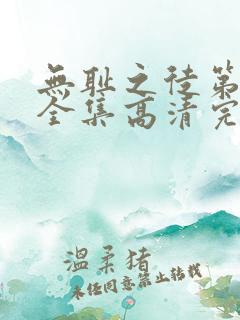 無耻之徒第
全集高清完
温柔猪
未经同意禁止转载